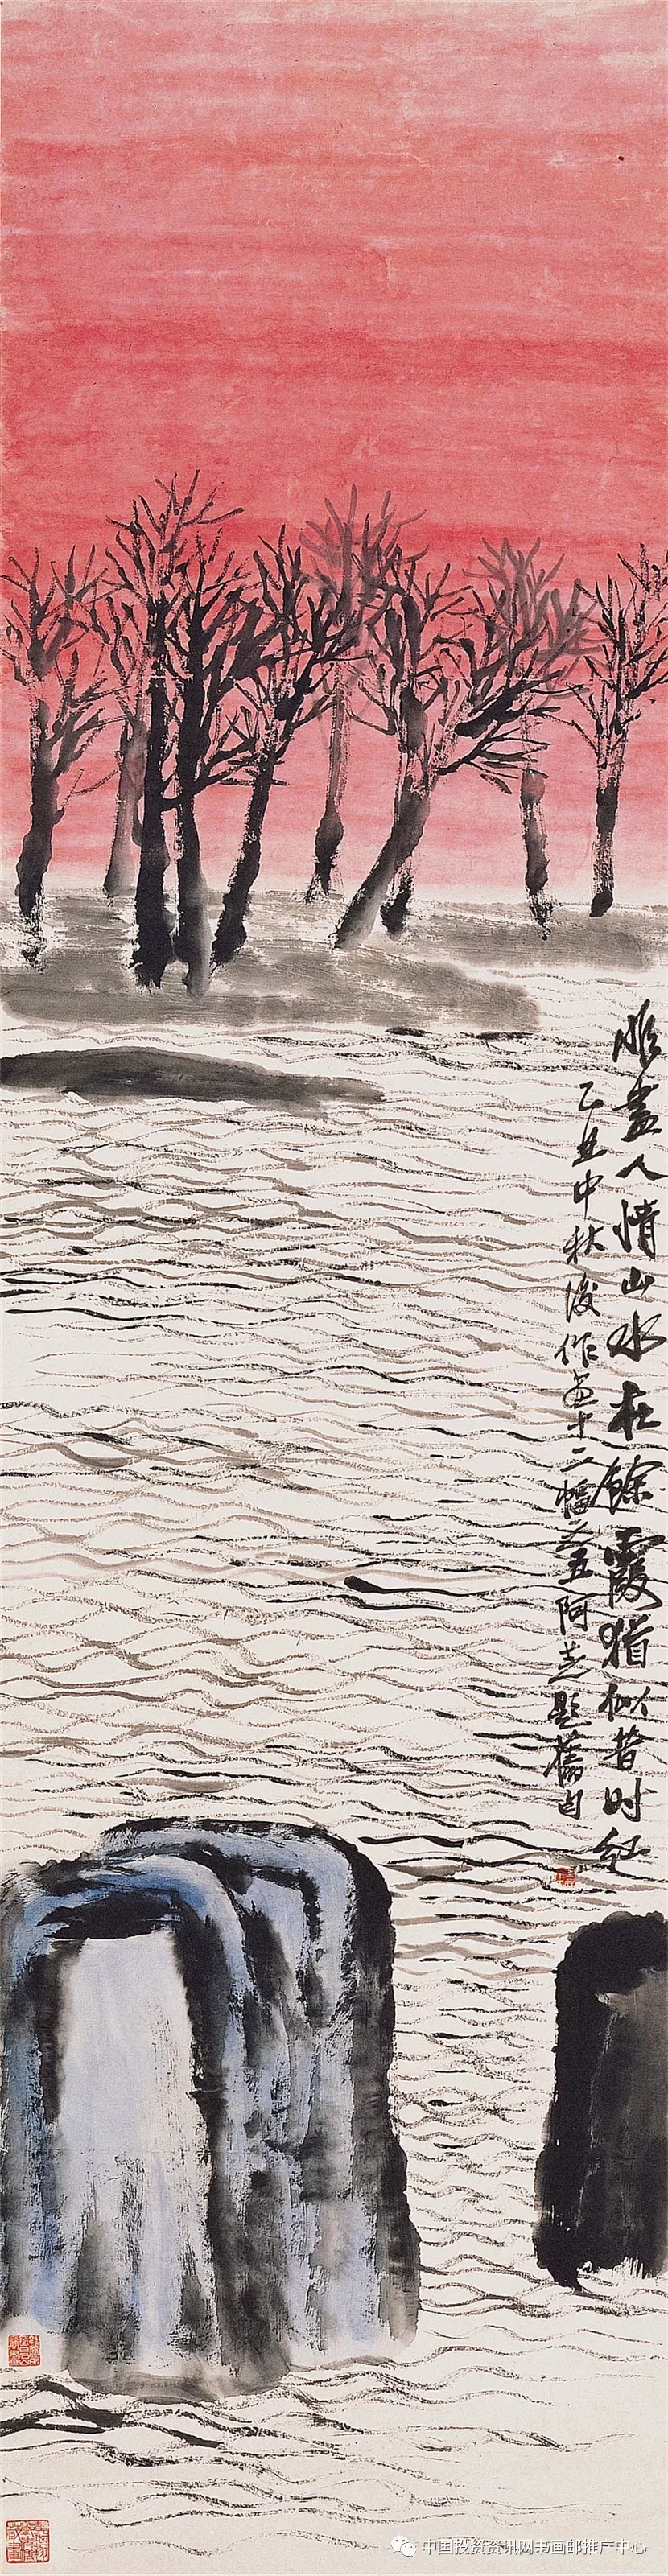 尽人情山水在餘霞猶似昔时红
乙丑中秋後作画十二幅之五阿芝題舊句
中国投资资讯网书画邮推广中心